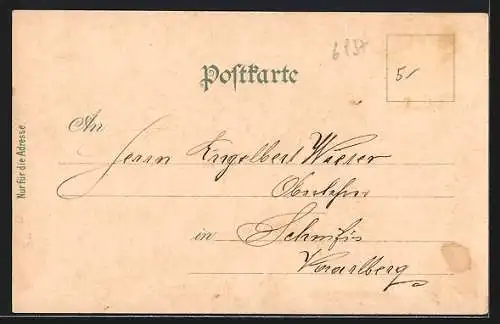 6837
Postkarte
51
An
Herrn Engelbert Wieser
Oberlehrer
in Schnifis
Vorarlberg
Nur für die Adresse.